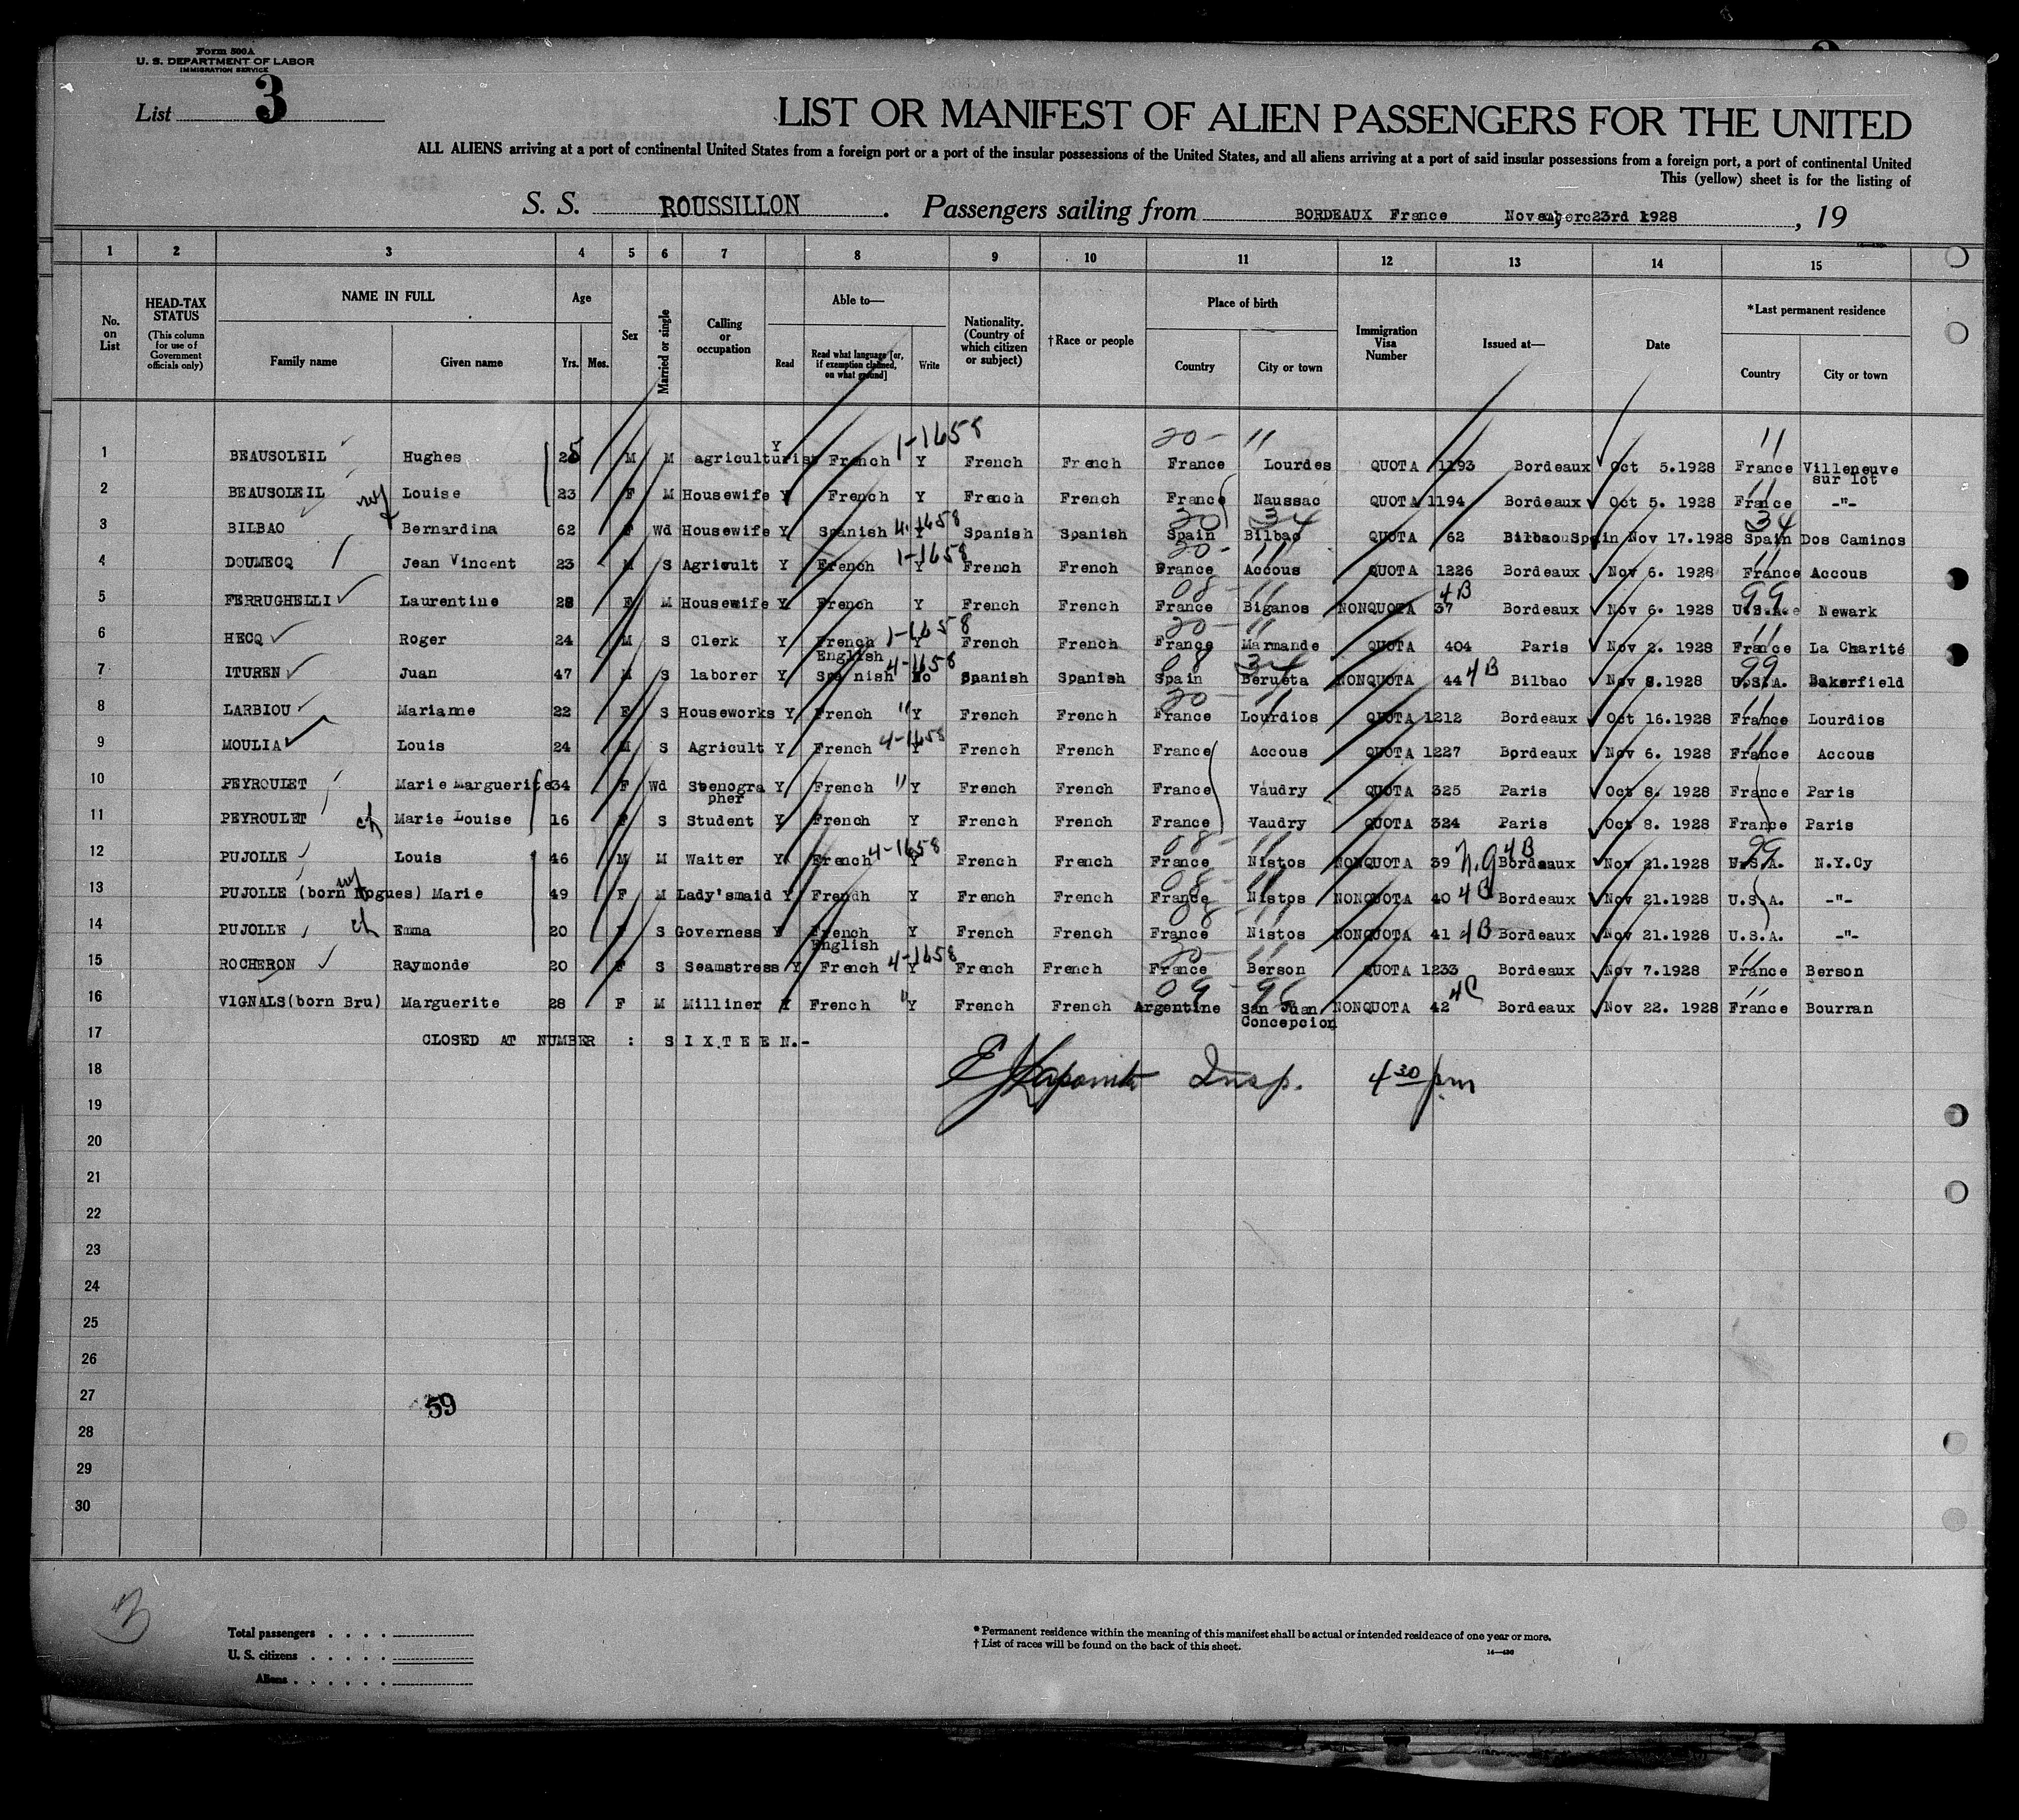 Form 500A
U. S. DEPARTMENT OF LABOR
IMMIGRATION SERVICE
List 3
LIST OR MANIFEST OF ALIEN PASSENGERS FOR THE UNITED
ALL ALIENS arriving at a port of continental United States from a foreign port or a port of the insular possessions of the United States, and all aliens arriving at a port of said insular possessions from a foreign port, a port of continental United
This (yellow) sheet is for the listing of
S. S. ROUSSILLON . Passengers sailing from BORDEAUX France 23rd 1928 , 19
1 2 3 4 5 6 7 8 9 10 11 12 13 14 15
No. on List
HEAD-TAX STATUS (This column for use of Government officials only)
NAME IN FULL
Family name Given name
Age
Yrs. Mos.
Sex
Married or single
Calling or occupation
Able to—
Read Read what language [or, if exemption claimed, on what ground] Write
Nationality. (Country of which citizen or subject)
†Race or people
Place of birth
Country City or town
Immigration Visa Number
Issued at—
Date
*Last permanent residence
Country City or town
1-1658 20- 11 11
1 BEAUSOLEIL Hughes 25 M M agriculturist Y French Y French French France Lourdes QUOTA 1193 Bordeaux Oct 5.1928 France Villeneuve sur lot
2 BEAUSOLEIL wf Louise 23 F M Housewife Y French Y French French France Naussac QUOTA 1194 Bordeaux Oct 5. 1928 France -"-
4-1658 20 34 34
3 BILBAO Bernardina 62 F Wd Housewife Y Spanish Y Spanish Spanish Spain Bilbao QUOTA 62 Bilbao Spain Nov 17.1928 Spain Dos Caminos
1-1658 20- 11 11
4 DOUMECQ Jean Vincent 23 M S Agricult Y French Y French French France Accous QUOTA 1226 Bordeaux Nov 6. 1928 France Accous
08- 11 4B 99
5 FERRUGHELLI Laurentine 28 F M Housewife Y French Y French French France Biganos NONQUOTA 37 Bordeaux Nov 6. 1928 U.S.A. Newark
1-1658 20- 11 11
6 HECQ Roger 24 M S Clerk Y French English Y French French France Marmande QUOTA 404 Paris Nov 2. 1928 France La Charité
4-1658 08 34 99
7 ITUREN Juan 47 M S laborer Y Spanish No Spanish Spanish Spain Berueta NONQUOTA 44 4B Bilbao Nov 8.1928 U.S.A. Bakerfield
20 11 11
8 LARBIOU Marianne 22 F S Houseworks Y French " Y French French France Lourdios QUOTA 1212 Bordeaux Oct 16.1928 France Lourdios
4-1658
9 MOULIA Louis 24 M S Agricult Y French Y French French France Accous QUOTA 1227 Bordeaux Nov 6. 1928 France Accous
10 PEYROULET Marie Marguerite 34 F Wd Stenographer Y French " Y French French France Vaudry QUOTA 325 Paris Oct 8. 1928 France Paris
11 PEYROULET ch Marie Louise 16 F S Student Y French Y French French France Vaudry QUOTA 324 Paris Oct 8. 1928 France Paris
4-1658 08- 11 4B 99
12 PUJOLLE Louis 46 M M Waiter Y French Y French French France Nistos NONQUOTA 39 Bordeaux Nov 21.1928 U.S.A. N.Y.Cy
08- 11
13 PUJOLLE (born Nogues) wf Marie 49 F M Lady'smaid Y Frendh Y French French France Nistos NONQUOTA 40 4B Bordeaux Nov 21.1928 U.S.A. -"-
08 11
14 PUJOLLE ch Emma 20 F S Governess Y French English Y French French France Nistos NONQUOTA 41 4B Bordeaux Nov 21.1928 U.S.A. -"-
4-1658 20- 11 11
15 ROCHERON Raymonde 20 F S Seamstress Y French Y French French France Berson QUOTA 1233 Bordeaux Nov 7.1928 France Berson
09 96 11
16 VIGNALS(born Bru) Marguerite 28 F M Milliner Y French " Y French French Argentine San Juan Concepcion NONQUOTA 42 4C Bordeaux Nov 22. 1928 France Bourran
17 CLOSED AT NUMBER : S I X T E E N.-
18 Insp. 4 30 pm
19
20
21
22
23
24
25
26
27 59
28
29
30
3
Total passengers . . . .
U. S. citizens . . . . .
Aliens . . . . . .
* Permanent residence within the meaning of this manifest shall be actual or intended residence of one year or more.
† List of races will be found on the back of this sheet.
14—430